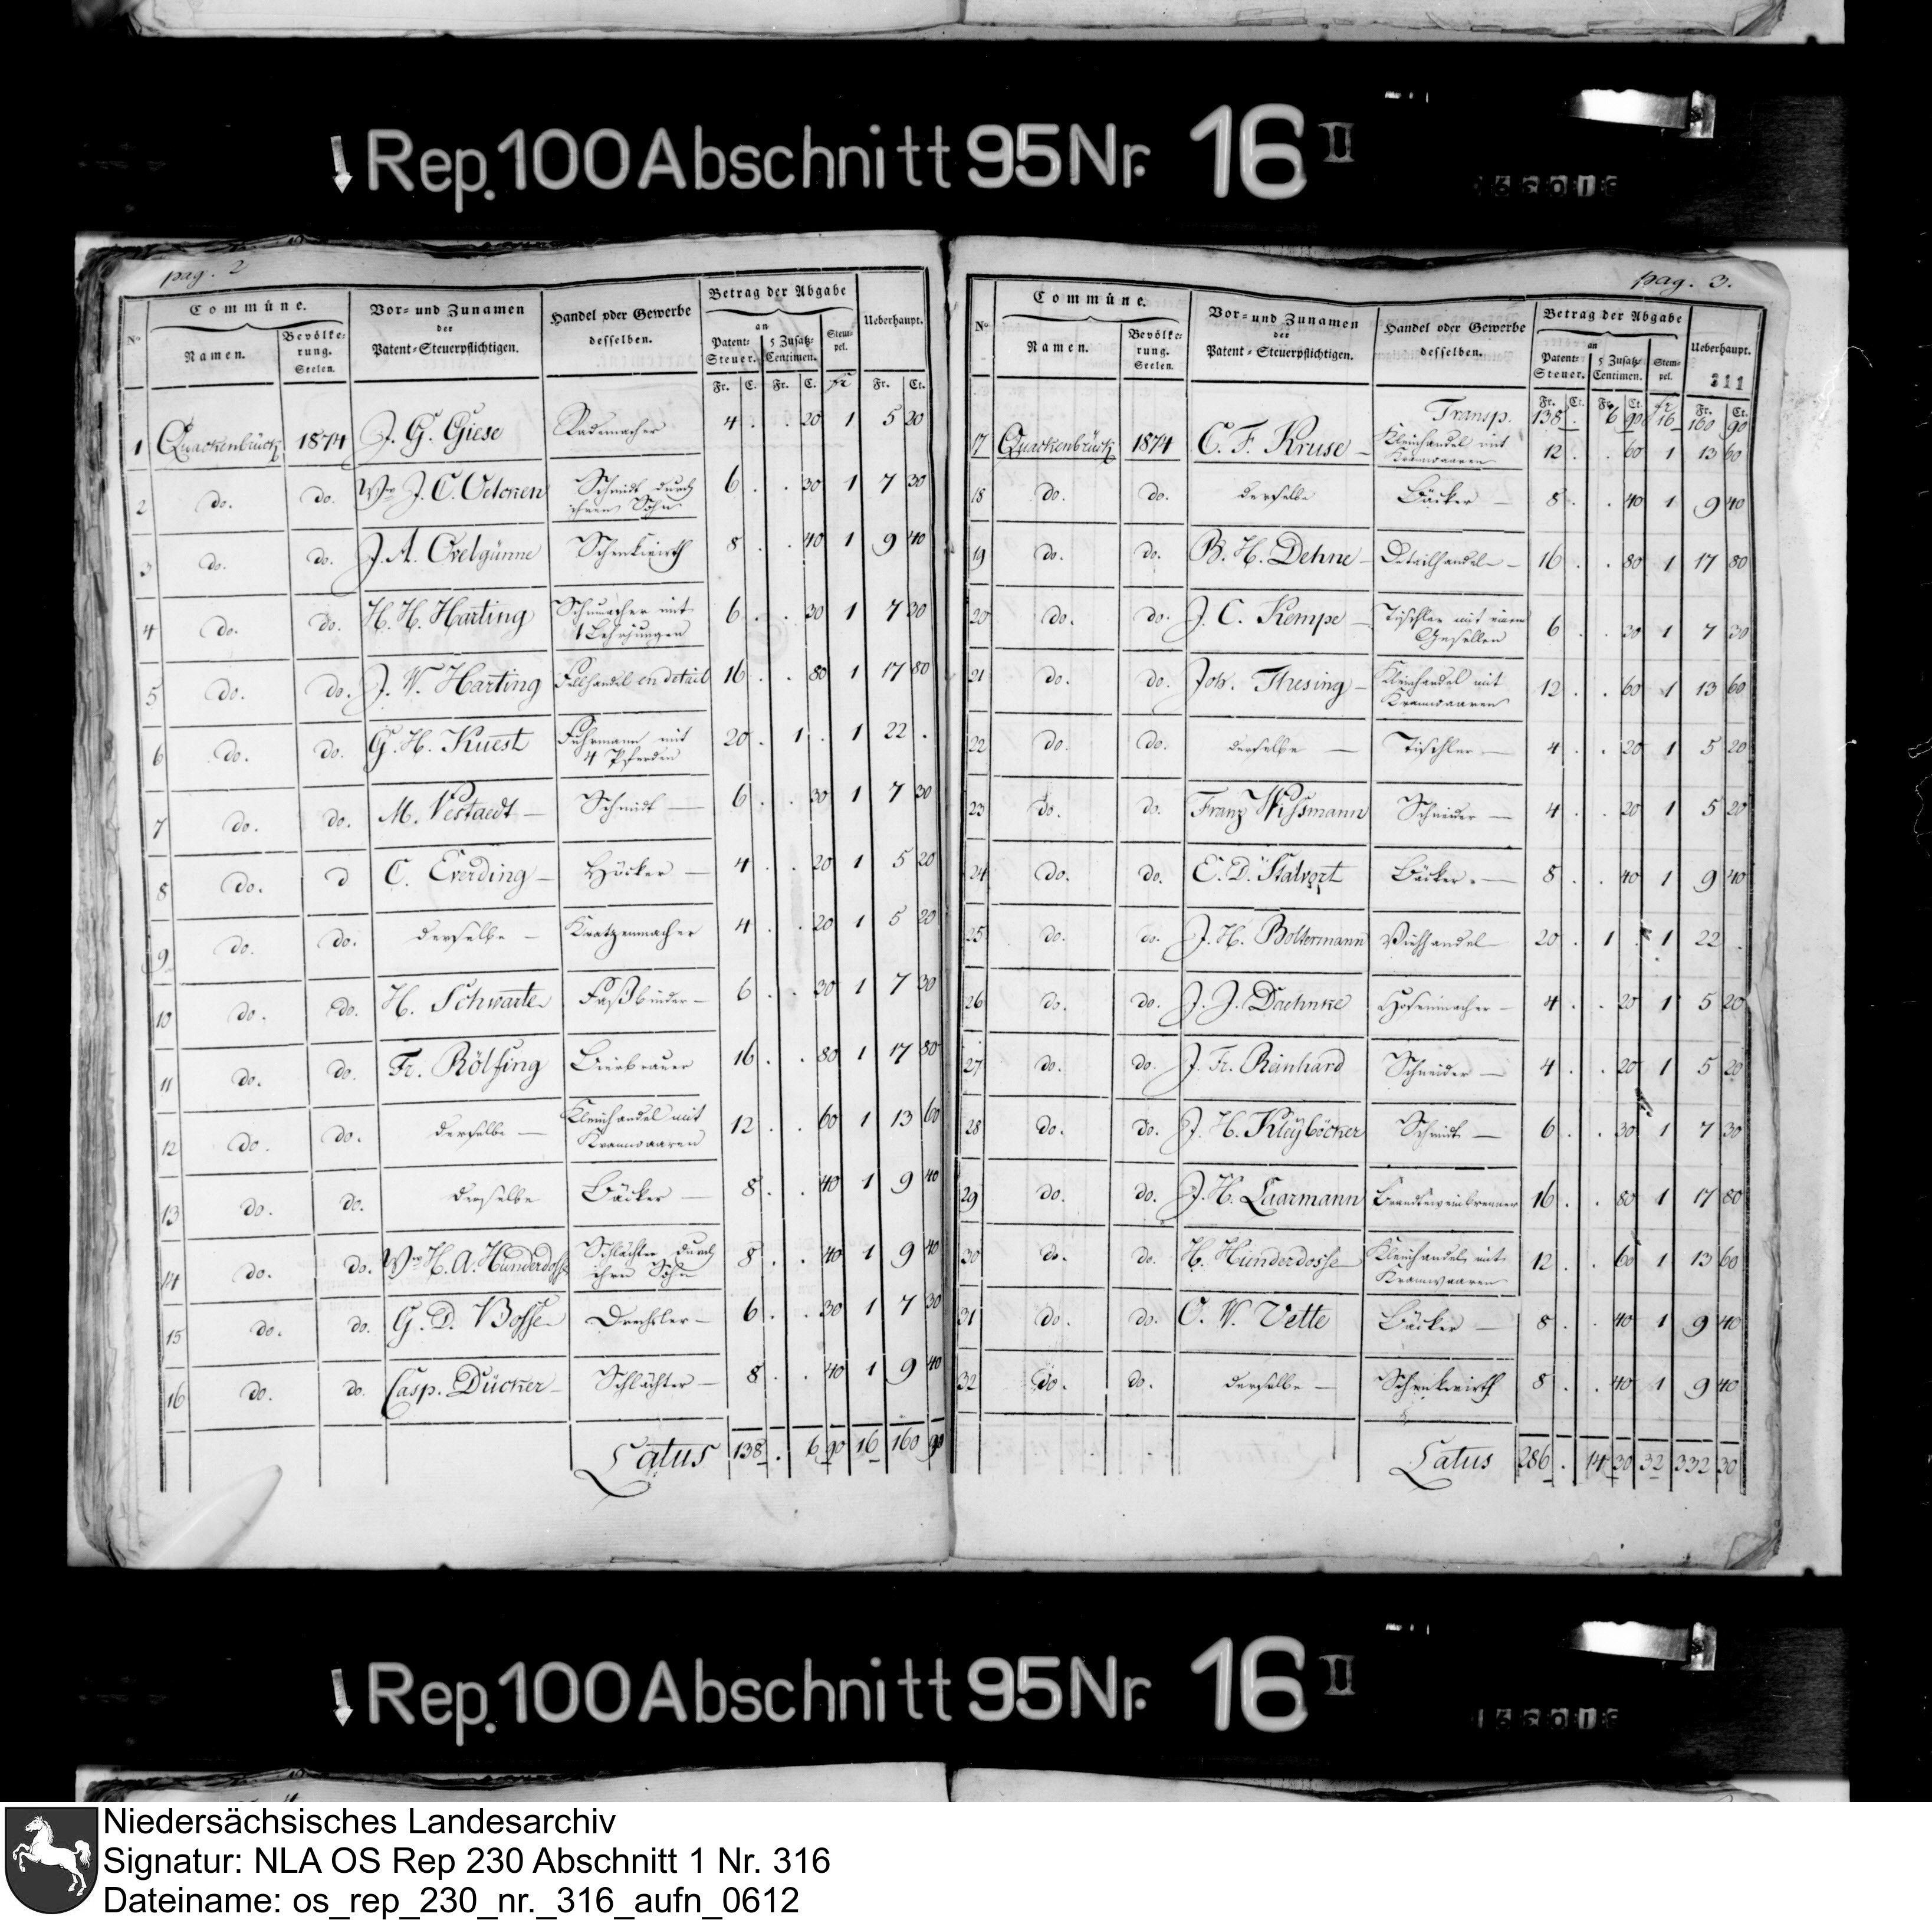 Rep. 100 Abschnitt 95 Nr. 16 II
pag. 2
No. Commüne. Vor- und Zunamen der Patent-Steuerpflichtigen. Handel oder Gewerbe desselben. Betrag der Abgabe an Ueberhaupt.
Namen. Bevölkerung. Seelen. Patent-Steuer. 5 Zusatz-Centimen. Stempel.
Fr. C. Fr. C. fr Fr. Ct.
1 Quackenbrück 1874 J. G. Giese Rademacher 4 . . 20 1 5 20
2 do. do. Wwe J. C. Oelcken Schmidt durch ihren Sohn 6 . . 30 1 7 30
3 do. do. J. A. Ovelgünne Schenkwirth 8 . . 40 1 9 40
4 do. do. H. H. Harting Schumacher mit 1 Lehrjungen 6 . . 30 1 7 30
5 do. do. J. W. Harting Fellhandel en detail 16 . . 80 1 17 80
6 do. do. G. H. Kuest Fuhrmann mit 4 Pferden 20 . 1 . 1 22 .
7 do. do. M. Vestaedt Schmidt 6 . . 30 1 7 30
8 do. d C. Everding Höcker 4 . . 20 1 5 20
9 do. do. derselbe Kratzenmacher 4 . . 20 1 5 20
10 do. do. H. Schwarte Faßbinder 6 . . 30 1 7 30
11 do. do. Fr. Rölfsing Bierbrauer 16 . . 80 1 17 80
12 do. do. derselbe Kleinhandel mit Kramwaaren 12 . . 60 1 13 60
13 do. do. derselbe Bäcker 8 . . 40 1 9 40
14 do. do. Wwe H. A. Hunderdosse Schlächter durch ihren Sohn 8 . . 40 1 9 40
15 do. do. G. D. Bosse Drechsler 6 . . 30 1 7 30
16 do. do. Casp. Dücker Schlächter 8 . . 40 1 9 40
Latus 138 . 6 90 16 160 90
pag. 3.
No. Commüne. Vor- und Zunamen der Patent-Steuerpflichtigen. Handel oder Gewerbe desselben. Betrag der Abgabe an Ueberhaupt.
Namen. Bevölkerung. Seelen. Patent-Steuer. 5 Zusatz-Centimen. Stempel.
311
Fr. Ct. Fr. Ct. fr Fr. Ct.
Transp. 138 . 6 90 16 160 90
17 Quackenbrück 1874 C. F. Kruse Kleinhandel mit Kramwaaren 12 . . 60 1 13 60
18 do. do. derselbe Bäcker 8 . . 40 1 9 40
19 do. do. B. H. Dehne Detailhandel 16 . . 80 1 17 80
20 do. do. J. C. Kempe Tischler mit einem Gesellen 6 . . 30 1 7 30
21 do. do. Joh. Thesing Kleinhandel mit Kramwaaren 12 . . 60 1 13 60
22 do. do. derselbe Tischler 4 . . 20 1 5 20
23 do. do. Franz Wissmann Schneider 4 . . 20 1 5 20
24 do. do. E. D. Stalvort Bäcker 8 . . 40 1 9 40
25 do. do. J. H. Boltermann Viehhandel 20 . 1 . 1 22 .
26 do. do. J. J. Daehnke Hosenmacher 4 . . 20 1 5 20
27 do. do. J. Fr. Reinhard Schneider 4 . . 20 1 5 20
28 do. do. J. H. Kleyböcker Schmidt 6 . . 30 1 7 30
29 do. do. J. H. Laarmann Brandtweinbrenner 16 . . 80 1 17 80
30 do. do. H. Hunderdosse Kleinhandel mit Kramwaaren 12 . . 60 1 13 60
31 do. do. O. W. Vette Bäcker 8 . . 40 1 9 40
32 do. do. derselbe Schenkwirth 8 . . 40 1 9 40
Latus 286 . 14 30 32 332 30
Rep. 100 Abschnitt 95 Nr. 16 II
Niedersächsisches Landesarchiv
Signatur: NLA OS Rep 230 Abschnitt 1 Nr. 316
Dateiname: os_rep_230_nr._316_aufn_0612